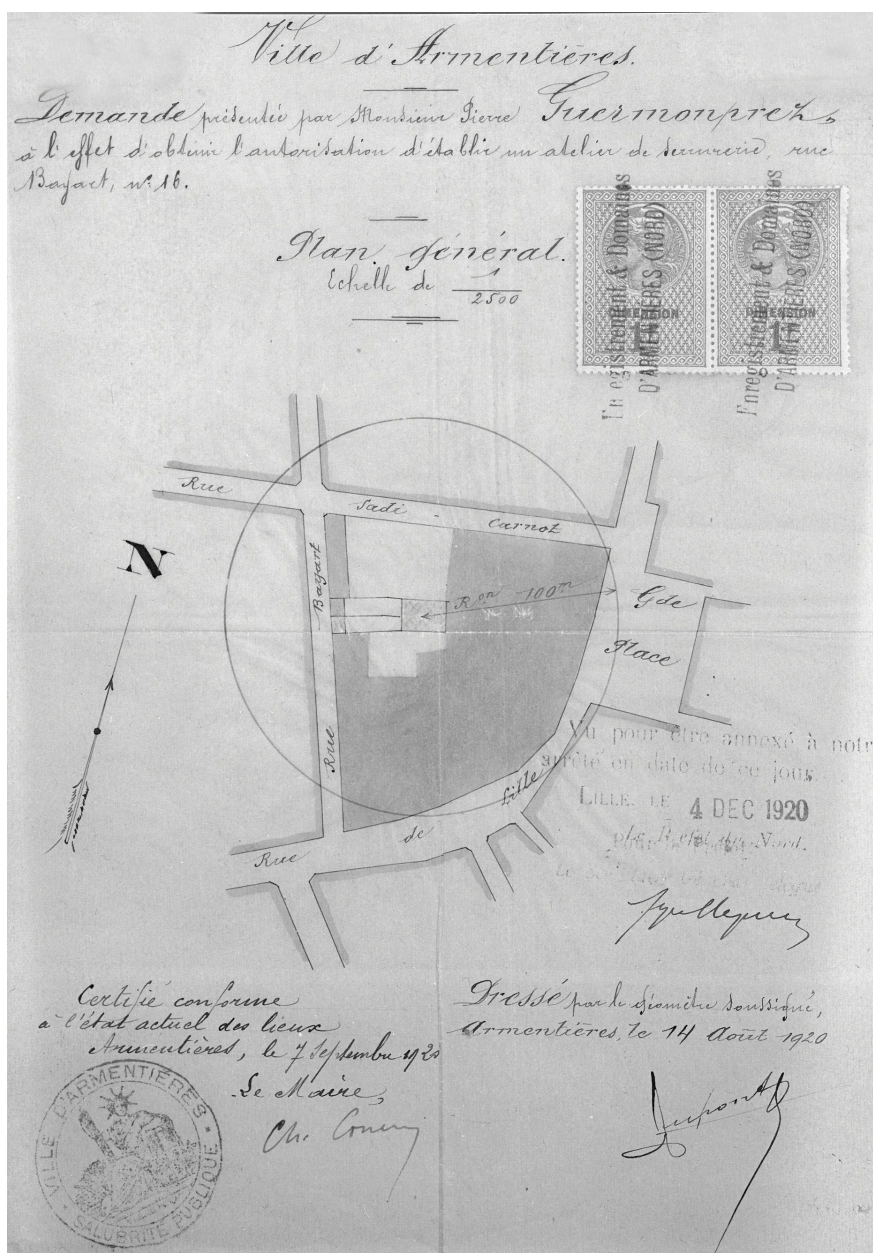 Ville d'Armentières.
Demande présentée par Monsieur Pierre Guermonprez,
à l'effet d'obtenir l'autorisation d'établir un atelier de serrurerie, rue
Bayart, n° 16.
Plan général.
Echelle de 1
2500
Enregistrement & Domaines
D'ARMENTIÈRES (NORD)
DIMENSION
1F
Enregistrement & Domaines
D'ARMENTIÈRES (NORD)
DIMENSION
1F
Rue Sadi - Carnot
N
Rue Bayart
Ron 100m
Gde
Place
Rue de Lille
Vu pour être annexé à notr
arrêté en date de ce jour
LILLE, LE 4 DEC 1920
Le Préfet du Nord.
Certifié conforme
à l'état actuel des lieux
Armentières, le 7 Septembre 1920
Le Maire,
VILLE D'ARMENTIÈRES
SALUBRITÉ PUBLIQUE
Dressé par le géomètre soussigné,
Armentières, le 14 Août 1920
Dupont